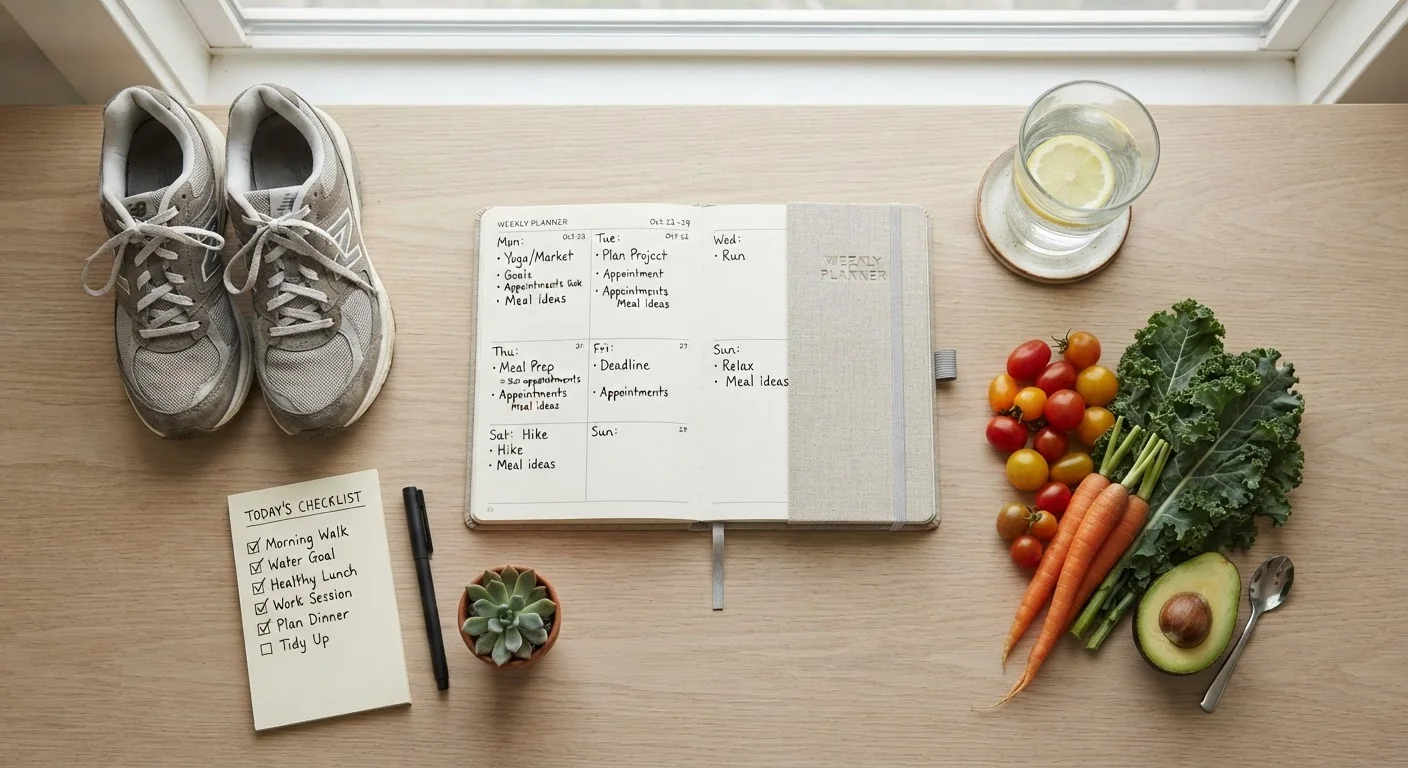 WEEKLY PLANNER
Oct 23-29
Mun:
Oct 23
• Yoga/Market
• Goals
• Appointments
• Meal ideas
Tue:
• Plan Project
• Appointment
• Appointments
Meal ideas
Wed:
• Run
Thu:
• Meal Prep
appointments
• Appointments
Meal ideas
Fri:
27
• Deadline
• Appointments
Sun:
• Relax
• Meal ideas
Sat: Hike
• Hike
• Meal ideas
Sun:
WEEKLY
PLANNER
TODAY'S CHECKLIST
☑ Morning Walk
☑ Water Goal
☑ Healthy Lunch
☑ Work Session
☑ Plan Dinner
☐ Tidy Up